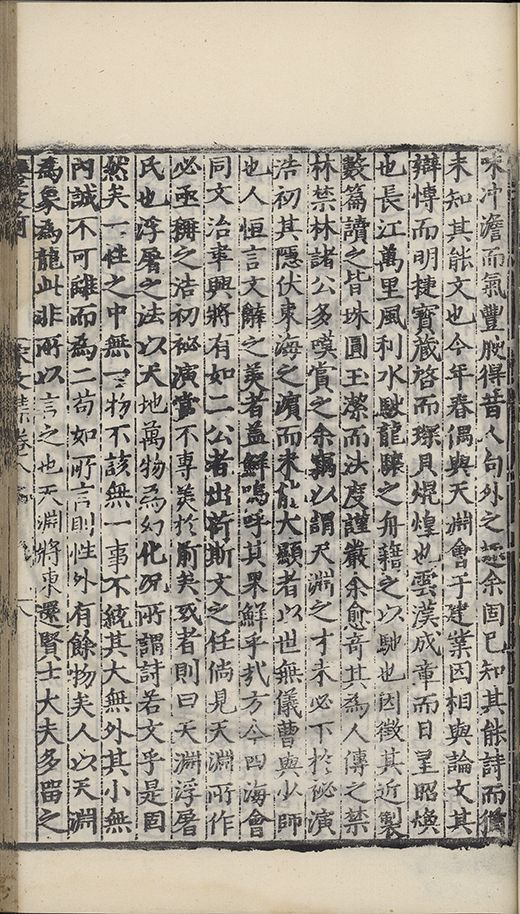 味冲澹而氣豐腴得昔人句外之趣余固已知其能詩而猶
未知其能文也今年春偶與天淵會于建業因相與論文其
辯博而明捷寶藏啓而琛貝焜煌也雲漢成章而日星昭煥
也長江萬里風利水駛龍驤之舟藉之以馳也因徵其近製
數篇讀之皆珠圓玉潔而法度謹嚴余愈奇其為人傳之禁
林禁林諸公多嘆賞之余竊以謂天淵之才未必下於祕演
浩初其隱伏東海之濱而未能大顯者以世無儀曹與少師
也人恒言文辭之美者益鮮嗚呼其果鮮乎哉方今四海會
同文治聿興將有如二公者出荷斯文之任倘見天淵所作
必亟稱之浩初祕演當不專美於前矣或者則曰天淵浮屠
氏也浮屠之法以天地萬物為幻化况所謂詩若文乎是固
然矣一性之中無一物不該無一事不統其大無外其小無
內誠不可離而為二苟如所言則性外有餘物矣人以天淵
為象為龍此非所以言之也天淵將東還賢士大夫多留之